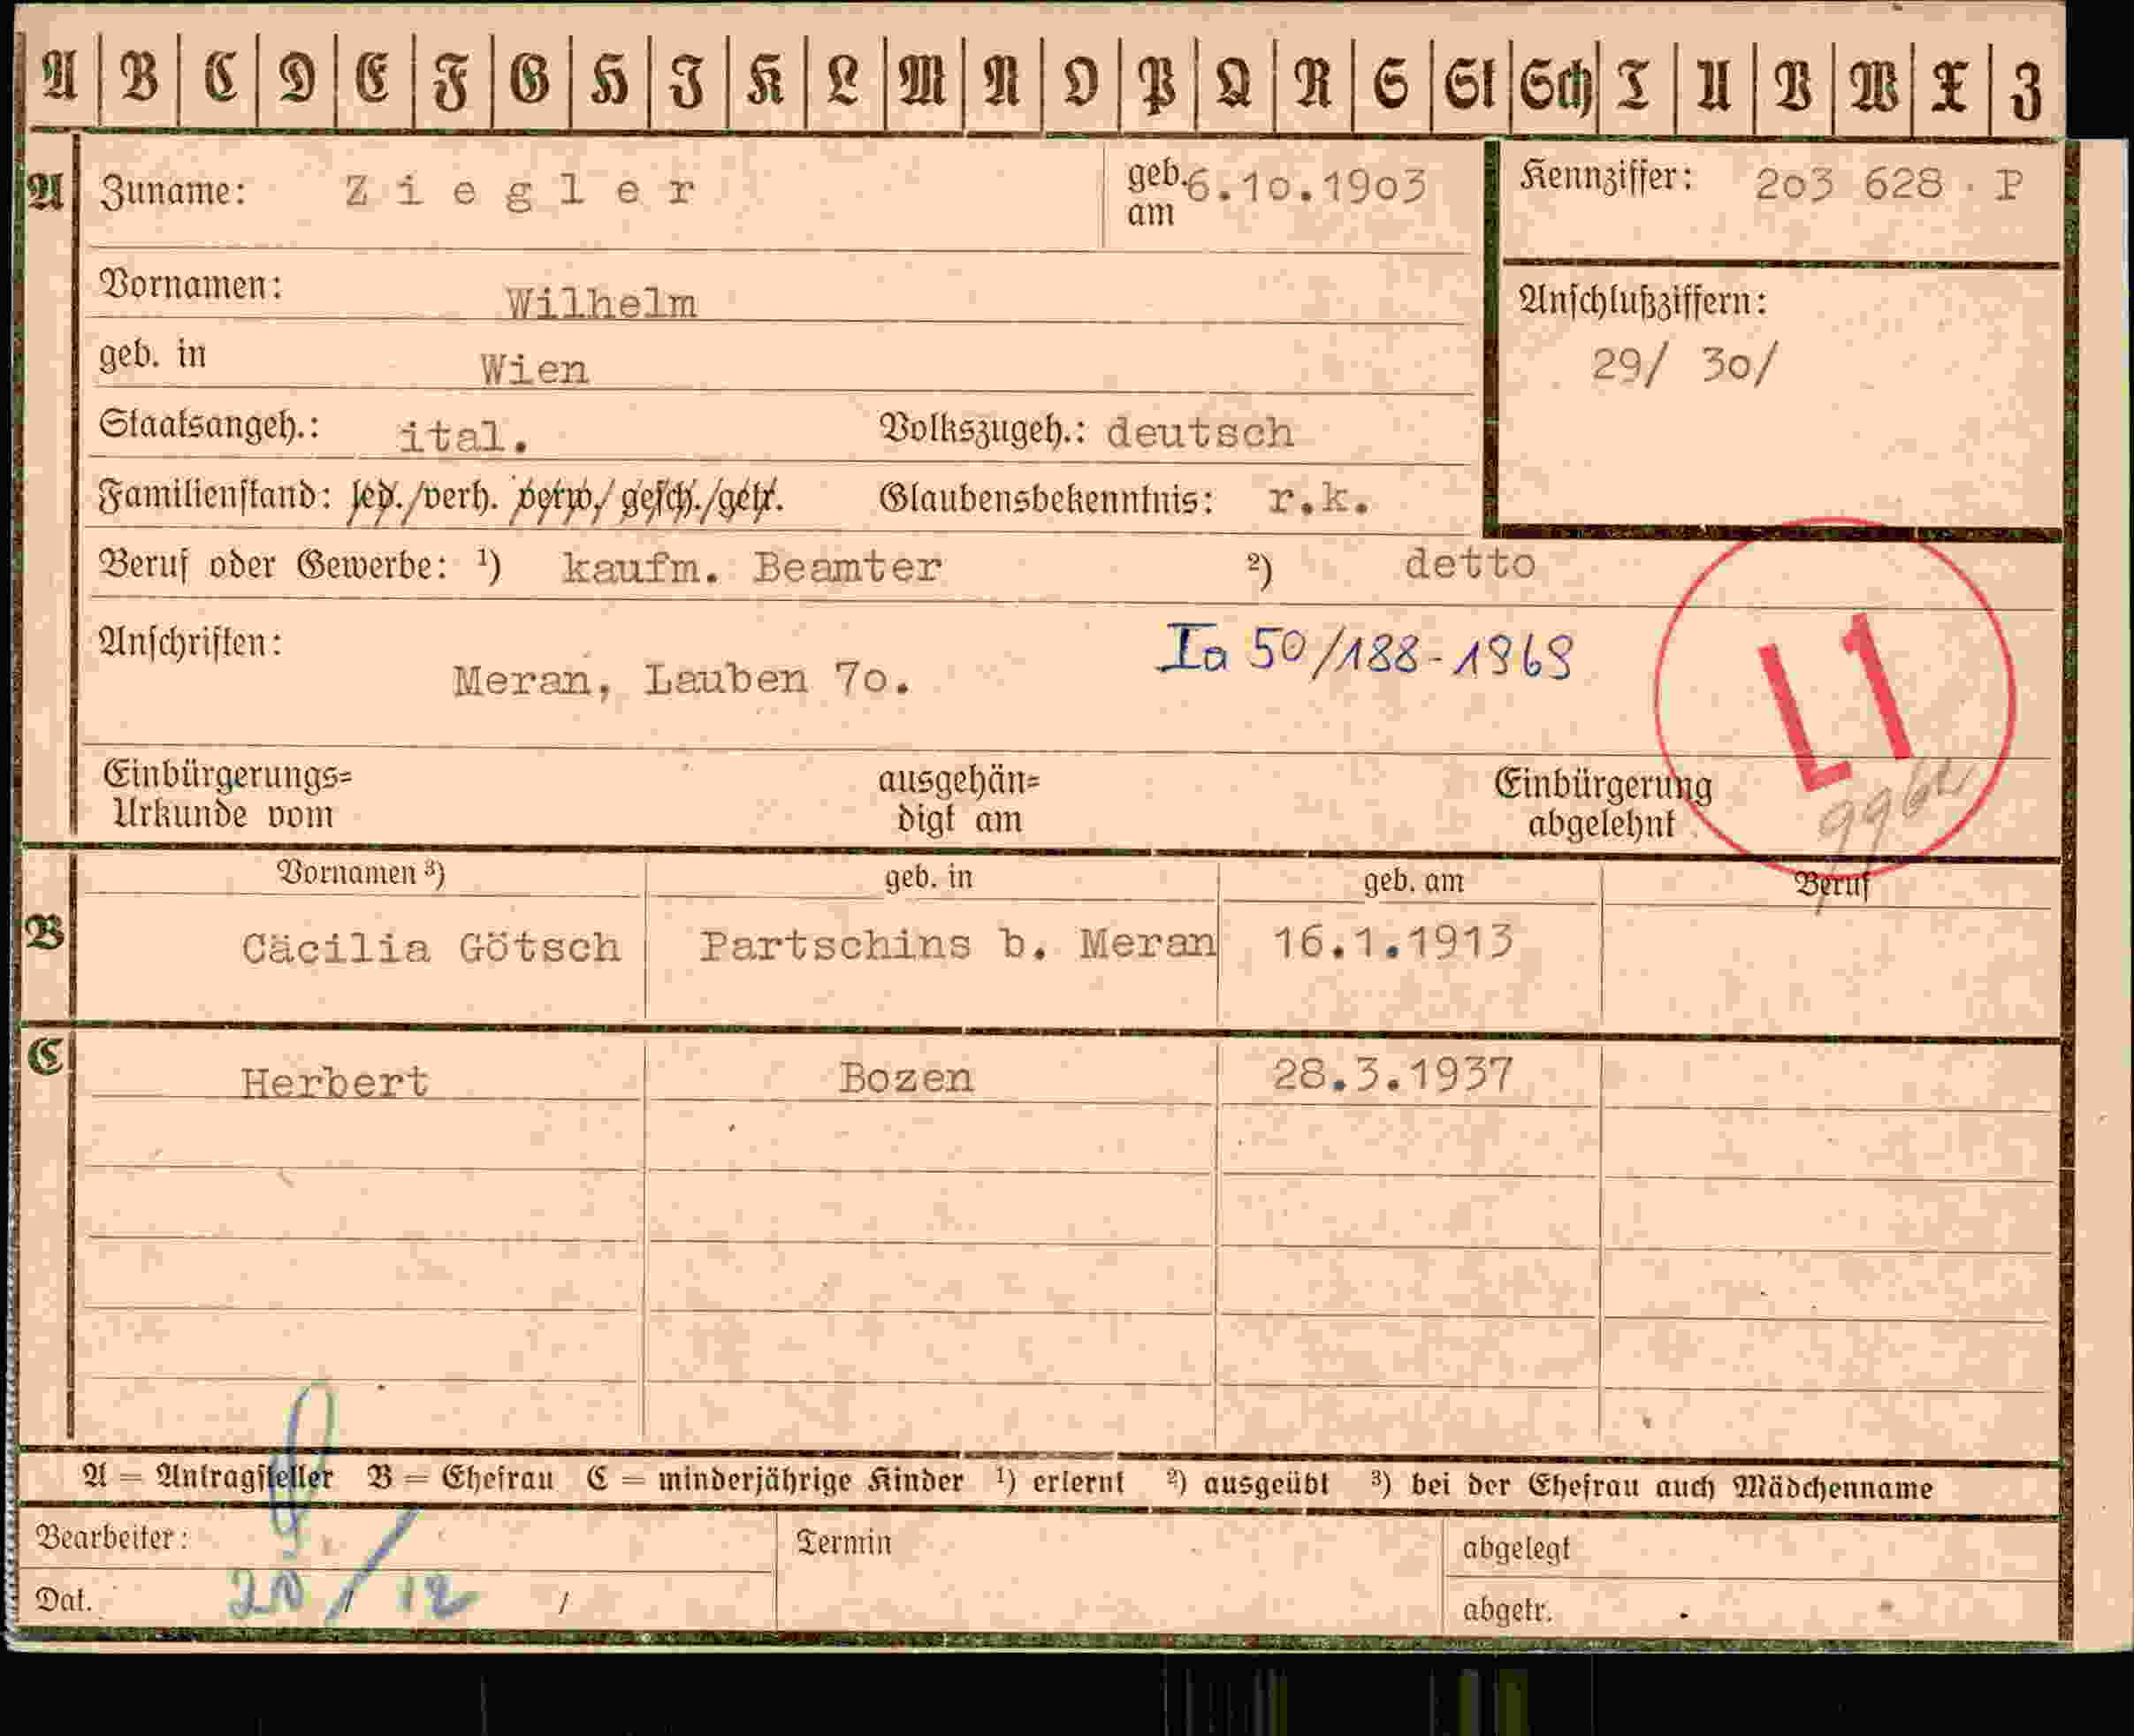 A B C D E F G H J K L M N O P Q R S St Sch T U V W X Z
A Zuname: Ziegler geb. am 6.10.1903 Kennziffer: 203 628 P
Vornamen: Wilhelm
Anschlußziffern:
29/ 30/
geb. in Wien
Staatsangeh.: ital. Volkszugeh.: deutsch
Familienstand: led./verh. verw./gesch./getr. Glaubensbekenntnis: r.k.
Beruf oder Gewerbe: ¹) kaufm. Beamter ²) detto
Anschriften: Meran, Lauben 7o.
Ia 50/188-1969
L1
Einbürgerungs= ausgehän= Einbürgerung
Urkunde vom digt am abgelehnt
Vornamen ³) geb. in geb. am Beruf
B Cäcilia Götsch Partschins b. Meran 16.1.1913
C Herbert Bozen 28.3.1937
A = Antragsteller B = Ehefrau C = minderjährige Kinder ¹) erlernt ²) ausgeübt ³) bei der Ehefrau auch Mädchenname
Bearbeiter: Termin abgelegt
Dat. / 12 / abgetr.